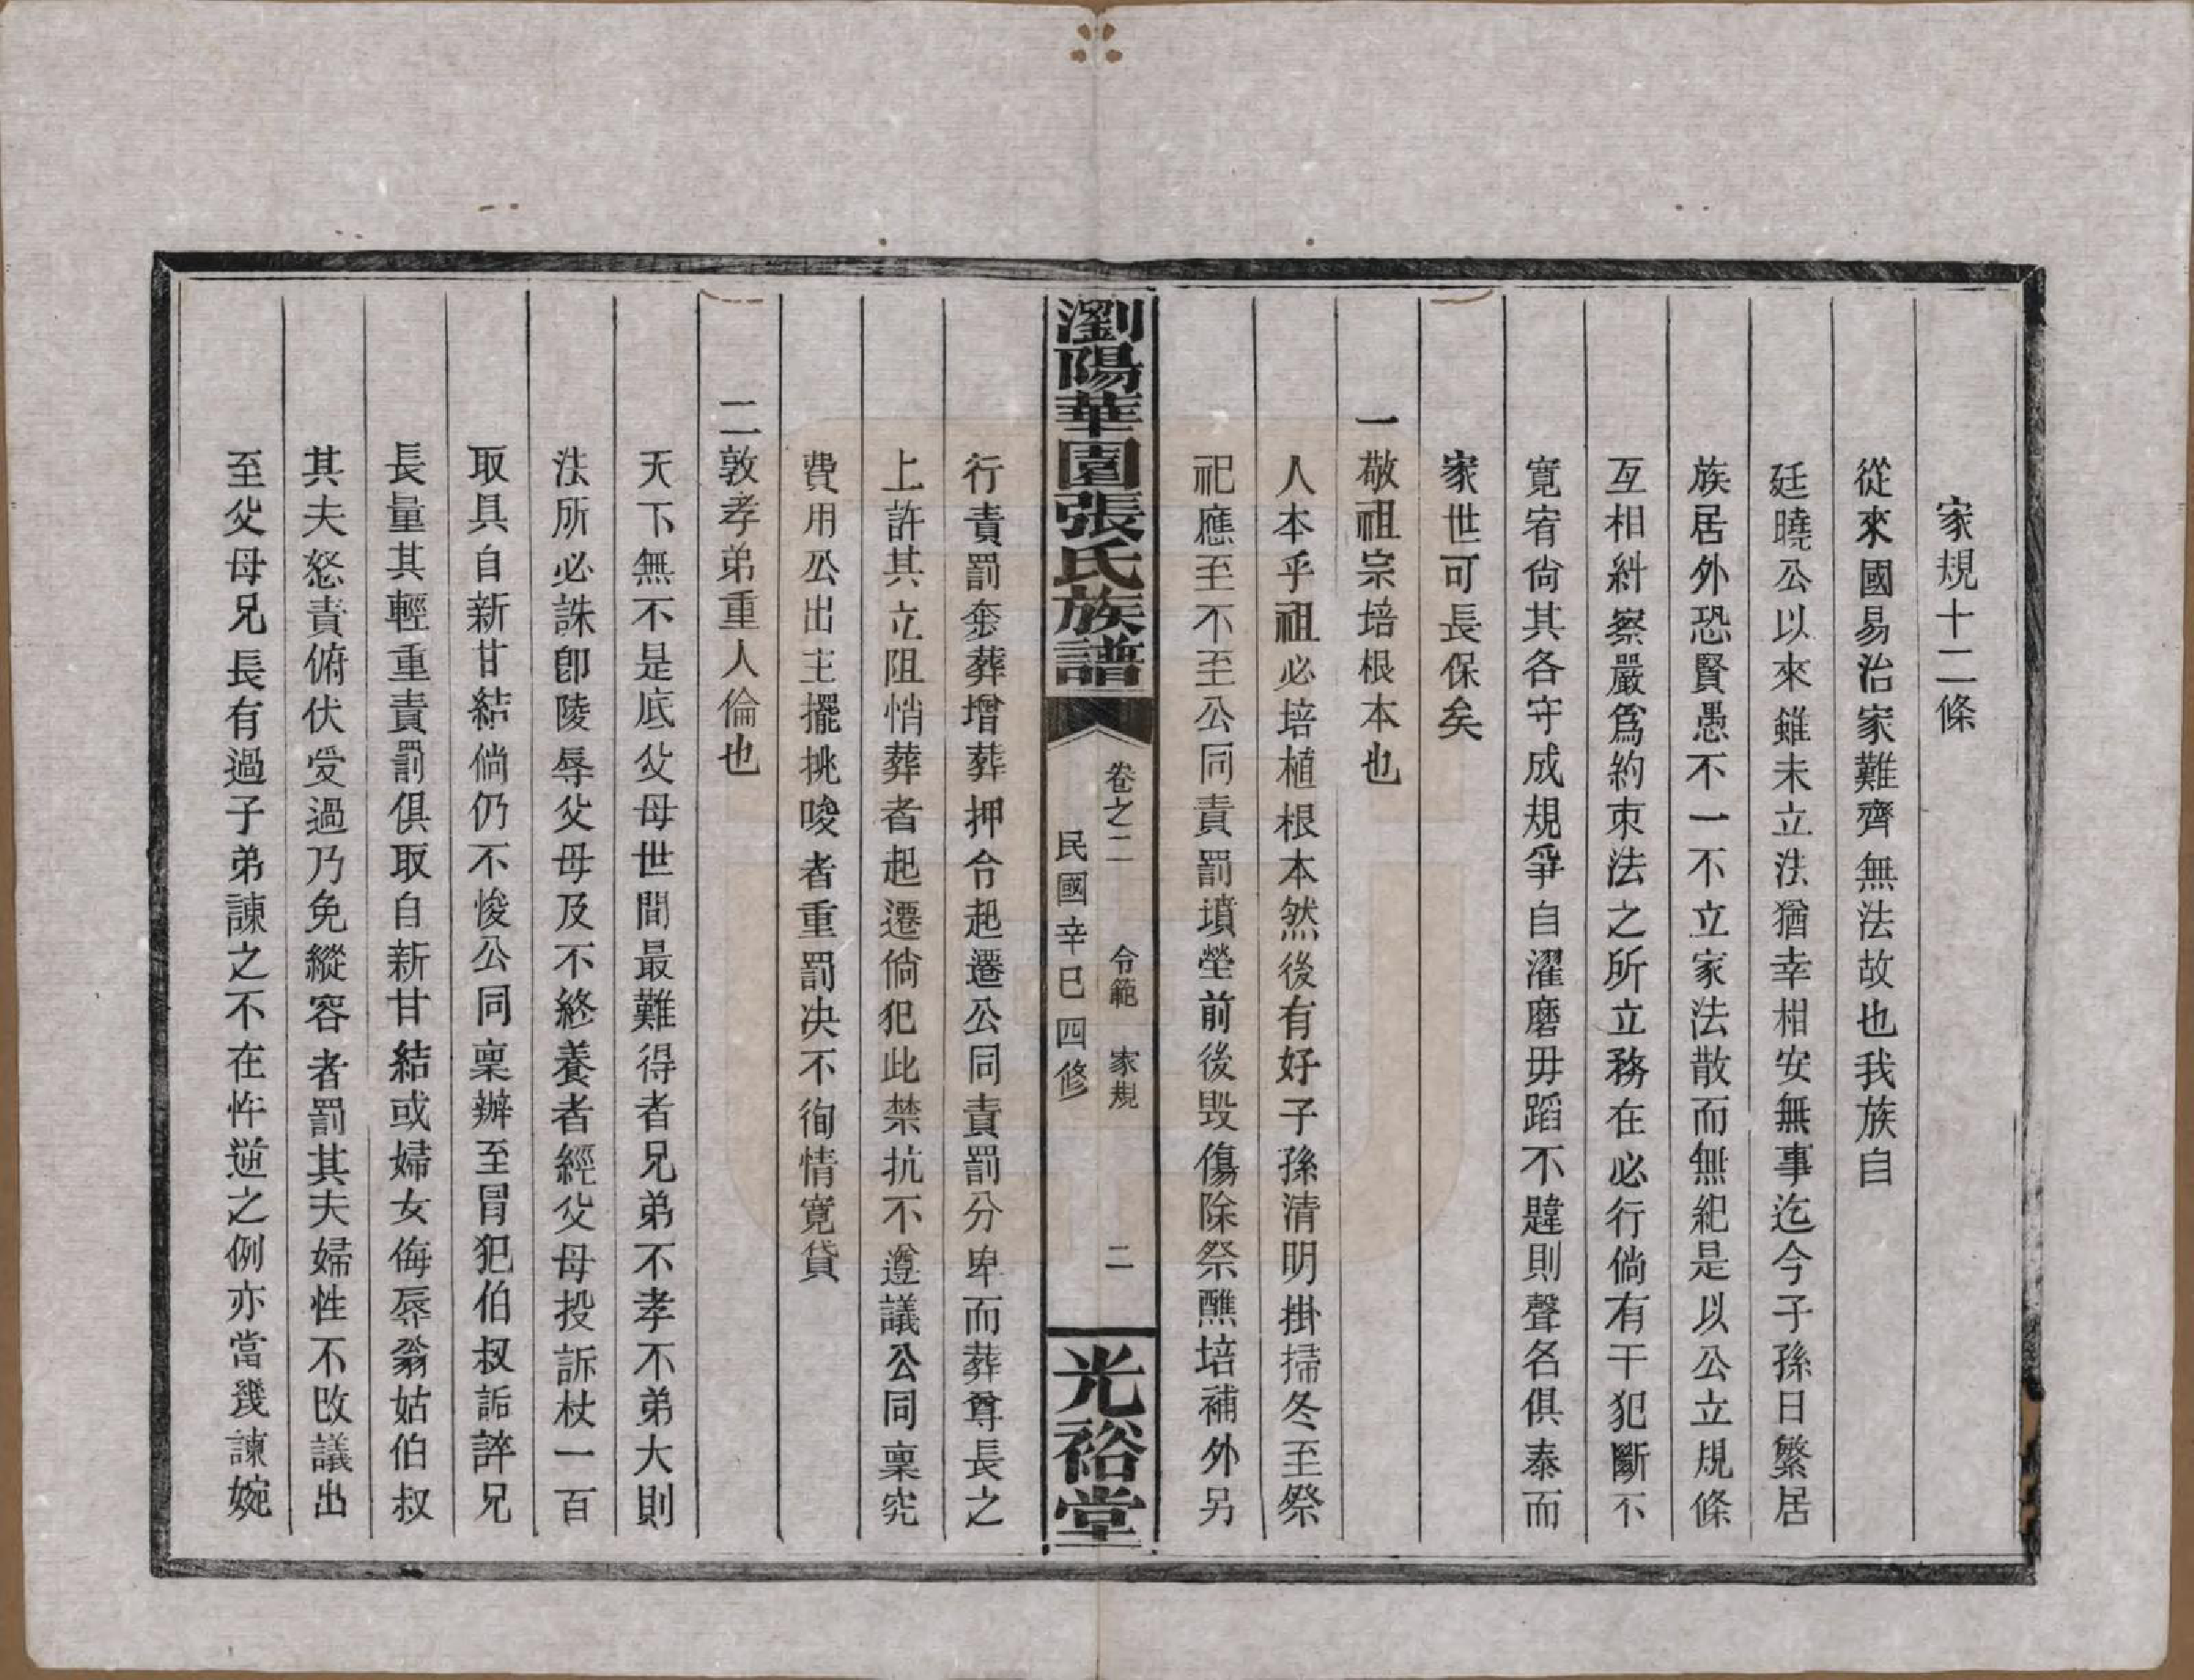 家規十二條
從來國易治家難齊無法故也我族自
廷曉公以來雖未立法猶幸相安無事迄今子孫日繁居
族居外恐賢愚不一不立家法散而無紀是以公立規條
互相糾察嚴爲約束法之所立務在必行倘有干犯斷不
寬宥尙其各守成規爭自濯磨毋蹈不韙則聲名俱泰而
家世可長保矣
一敬祖宗培根本也
人本乎祖必培植根本然後有好子孫清明掛掃冬至祭
祀應至不至公同責罰墳塋前後毁傷除祭醮培補外另
瀏陽華園張氏族譜
卷之二　令範　家規　二
民國辛巳四修
光裕堂
行責罰葬增葬押令起遷公同責罰分卑而葬尊長之
上許其立阻悄葬者起遷倘犯此禁抗不遵議公同稟究
費用公出主擺挑唆者重罰決不徇情寬貸
二敦孝弟重人倫也
天下無不是底父母世間最難得者兄弟不孝不弟大則
法所必誅卽陵辱父母及不終養者經父母投訴杖一百
取具自新甘結倘仍不悛公同稟辦至冒犯伯叔詬誶兄
長量其輕重責罰俱取自新甘結或婦女侮辱翁姑伯叔
其夫怒責俯伏受過乃免縱容者罰其夫婦性不改議出
至父母兄長有過子弟諫之不在忤逆之例亦當幾諫婉